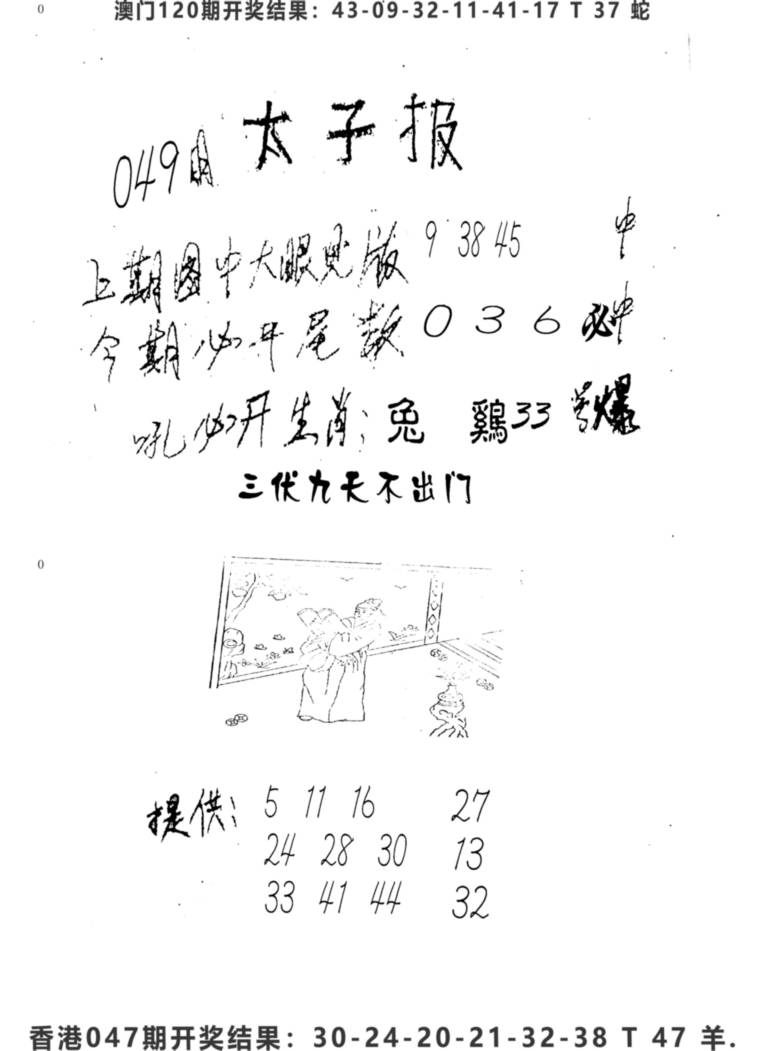 0
澳门120期开奖结果：43-09-32-11-41-17 T 37 蛇
太子报
049期
上期图中大眼见版 9 38 45 中
今期必开尾数 0 3 6 必中
吼必开生肖：兔 鷄 33 号爆
三伏九天不出门
0
提供：5 11 16 27
24 28 30 13
33 41 44 32
香港047期开奖结果：30-24-20-21-32-38 T 47 羊.